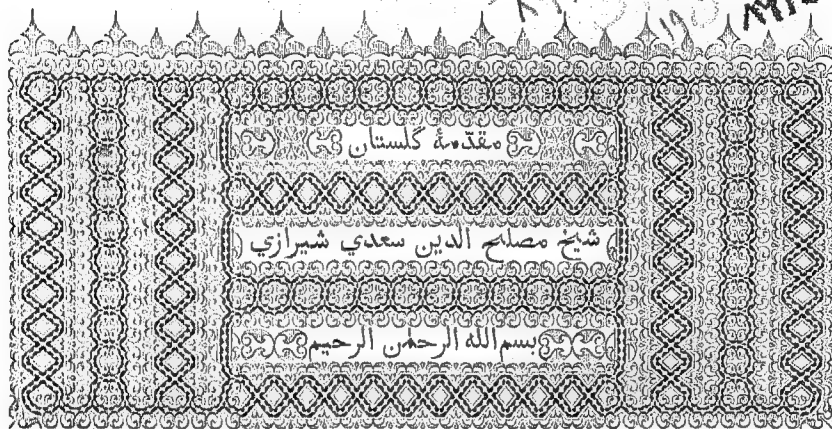 مقدّمهٔ گلستان
شیخ مصلح الدین سعدي شیرازي
بسم الله الرحمن الرحیم